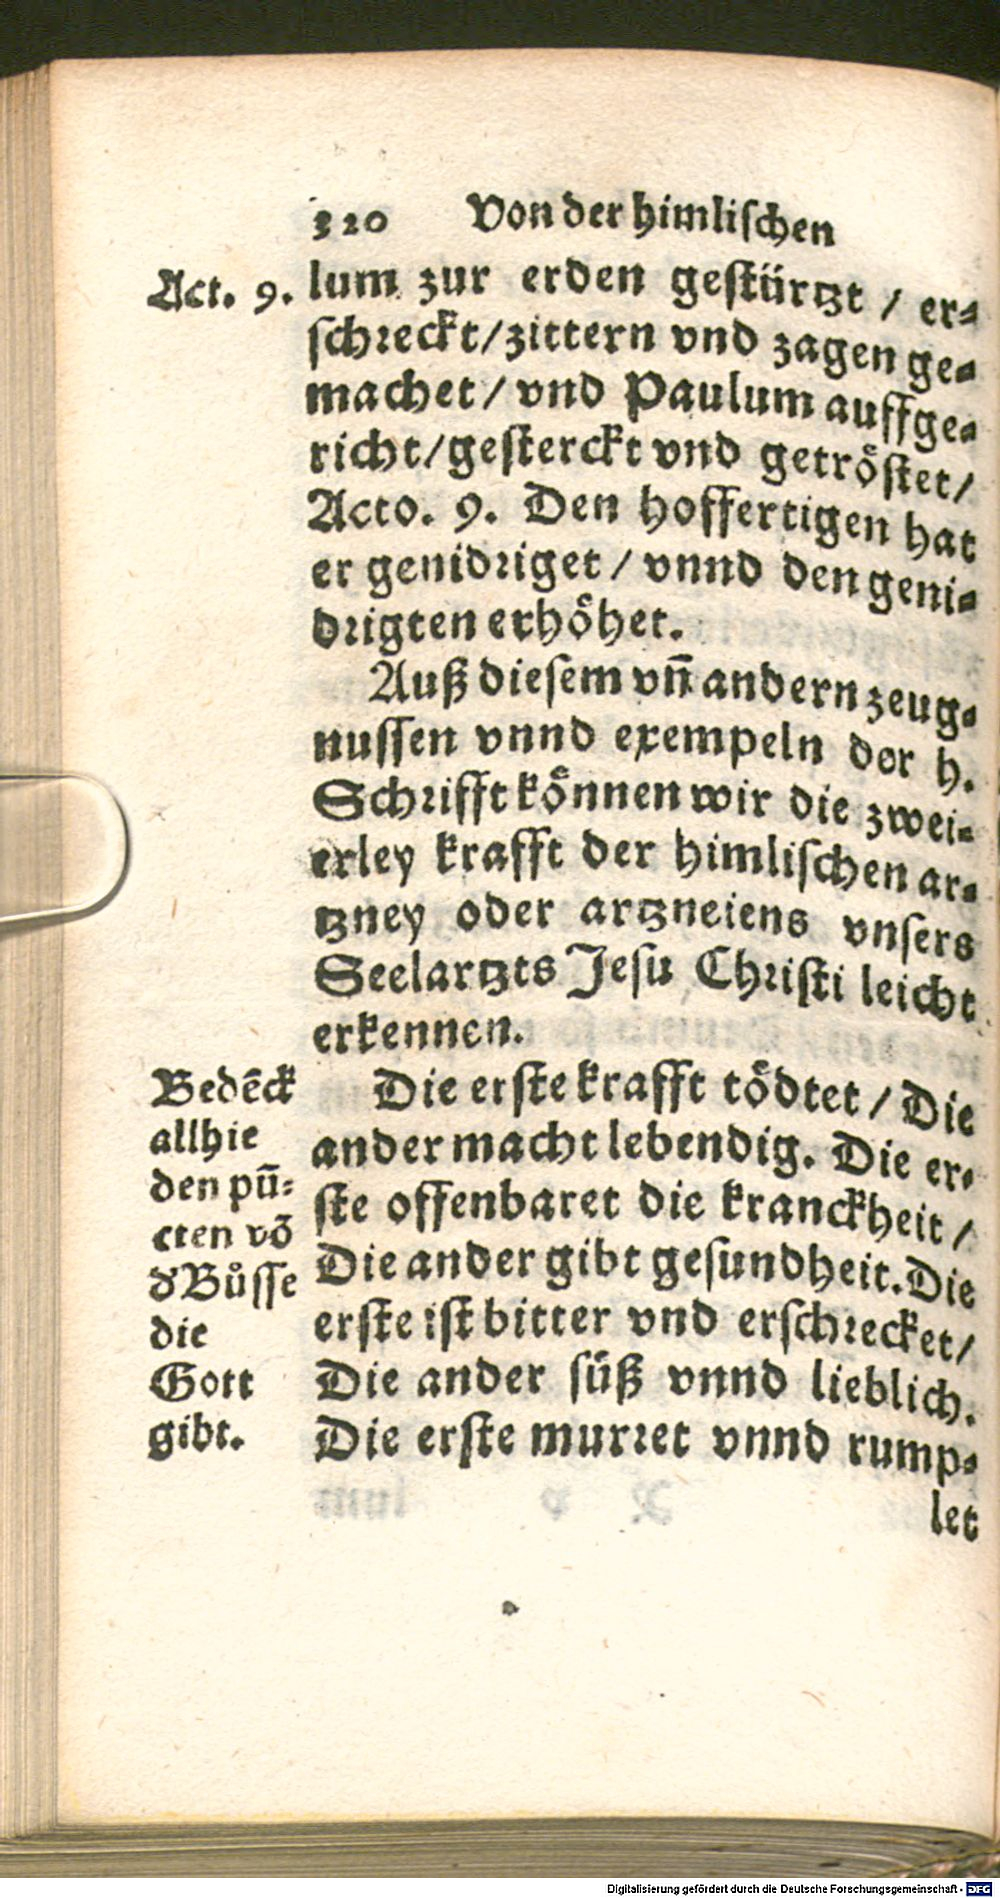 320 Von der himlischen
Act. 9.
lum zur erden gestürtzt / er⸗
schreckt/zittern vnd zagen ge⸗
machet / vnd Paulum auffge⸗
richt/gesterckt vnd getröstet/
Acto. 9. Den hoffertigen hat
er genidriget / vnnd den geni⸗
drigten erhöhet.
Auß diesem vñ andern zeug⸗
nussen vnnd exempeln dor h.
Schrifft können wir die zwei⸗
erley krafft der himlischen ar⸗
tzney oder artzneiens vnsers
Seelartzts Jesu Christi leicht
erkennen.
Bedẽck
allhie
den pũ⸗
cten võ
d'Bůsse
die
Gott
gibt.
Die erste krafft tödtet / Die
ander macht lebendig. Die er⸗
ste offenbaret die kranckheit /
Die ander gibt gesundheit. Die
erste ist bitter vnd erschrecket/
Die ander süß vnnd lieblich.
Die erste murret vnnd rump⸗
let
Digitalisierung gefördert durch die Deutsche Forschungsgemeinschaft - DFG